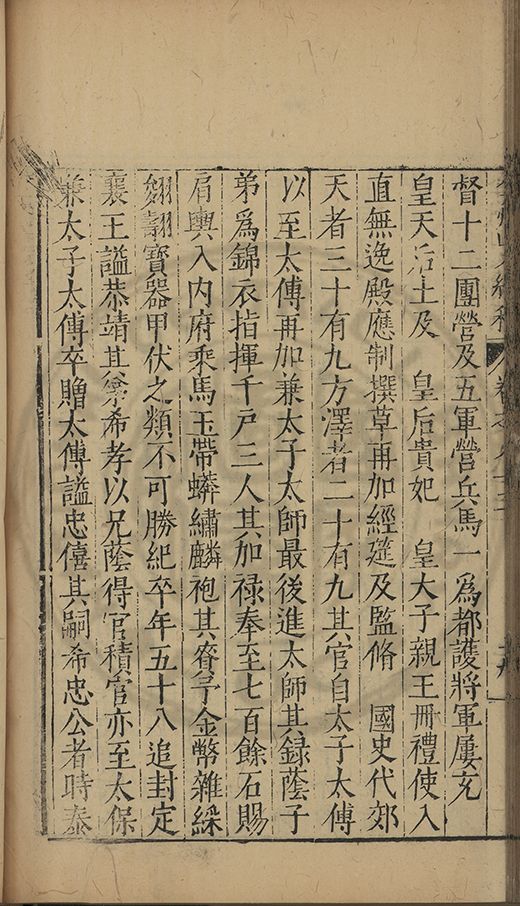 督十二團營及五軍營兵馬一為都護將軍屢充
皇天后土及　皇后貴妃　皇太子親王冊禮使入
直無逸殿應制撰草再加經筵及監脩　國史代郊
天者三十有九方澤者二十有九其官自太子太傅
以至太傅再加兼太子太師最後進太師其錄蔭子
弟為錦衣指揮千戶三人其加祿奉至七百餘石賜
肩輿入內府乘馬玉帶蟒繡麟袍其眷予金幣雜綵
翱翾寶器甲伏之類不可勝紀卒年五十八追封定
襄王謚恭靖其弟希孝以兄蔭得官積官亦至太保
兼太子太傅卒贈太傅謚忠僖其嗣希忠公者時泰